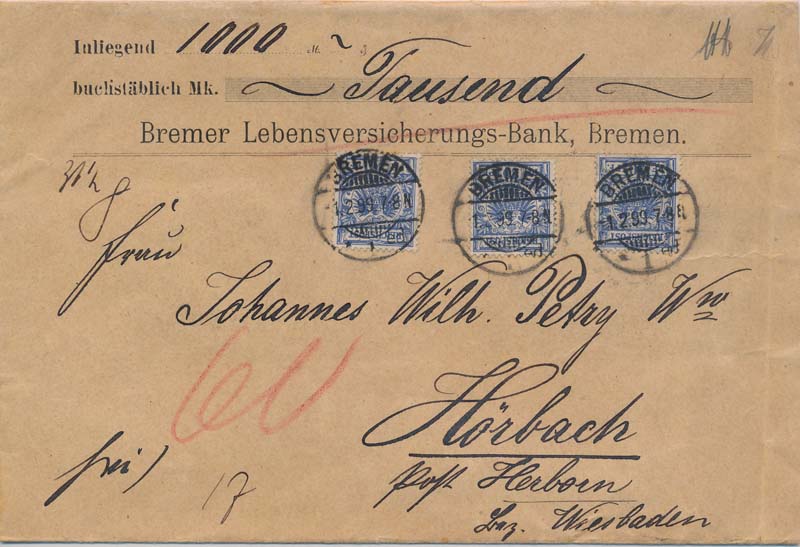 Inliegend 1000 M. ~ ₰
buchstäblich Mk. ~ Tausend ~
Bremer Lebensversicherungs-Bank, Bremen.
BREMEN BREMEN BREMEN
1.2.99.7-8N. 1.2.99.7-8N. 1.2.99.7-8N.
Frau
Johannes Wilh. Petry Ww
60
Hörbach
frei
Post Herborn
17
Bez. Wiesbaden